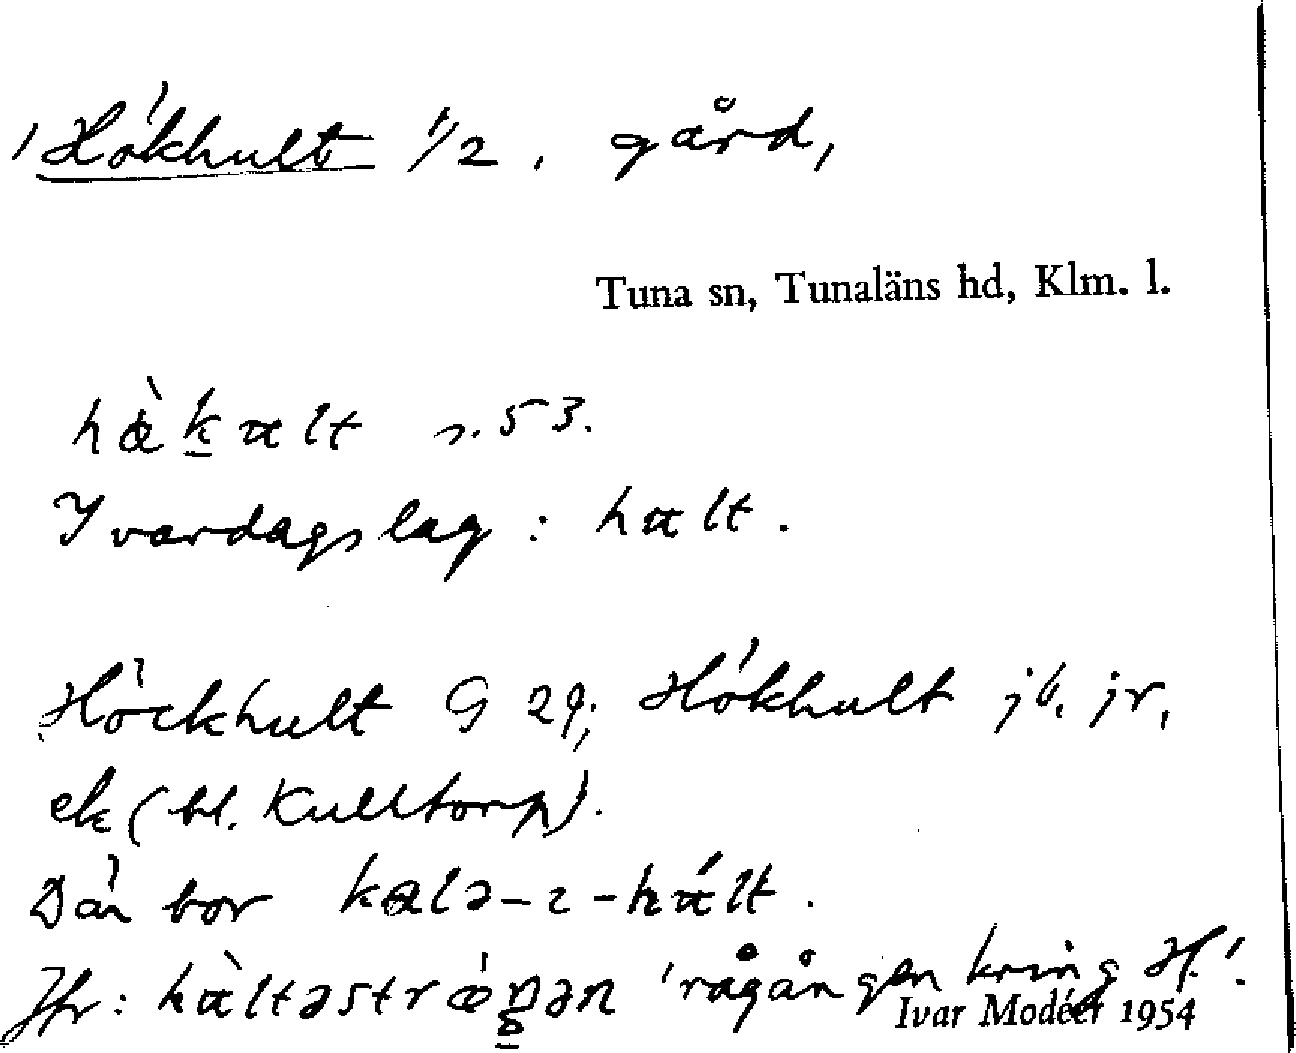 Hökhult 1/2. gård,
Tuna sn, Tunaläns hd, Klm. l.
hæ̀k̲ɑlt s. 53.
I vardagslag: hɑlt.
Höckhult G 29; Hökhult jb. jr,
ek (bl. Kulltorp).
Där bor kalə-ɩ-hɑ́lt.
Jfr: hɑ̀ltəstræ̀ŋən 'rågången kring H.'.
Ivar Modéer 1954